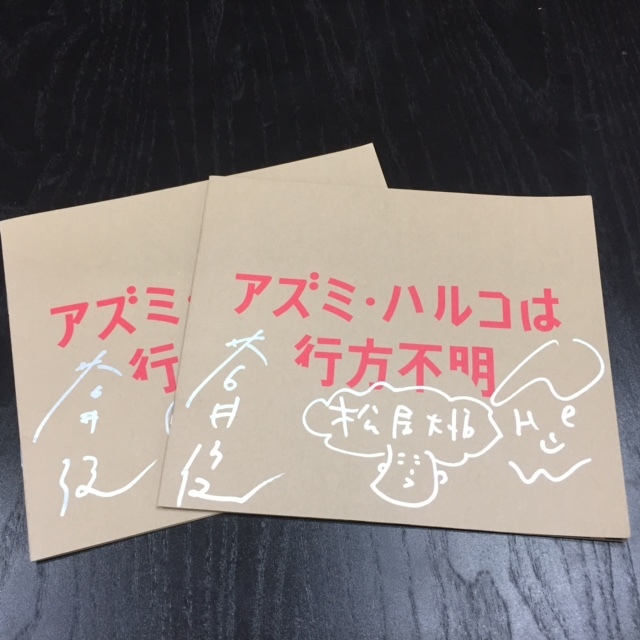 アズミ・
行
アズミ・ハルコは
行方不明
蒼井
優
蒼井
優
松居大悟